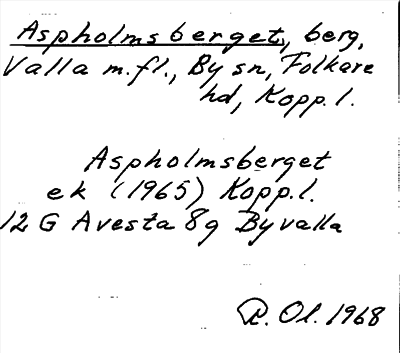 Aspholmsberget, berg,
Valla m.fl., By sn, Folkare
hd, Kopp. l.
Aspholmsberget
ek (1965) Kopp. l.
12 G Avesta 8g Byvalla
R. Ol. 1968